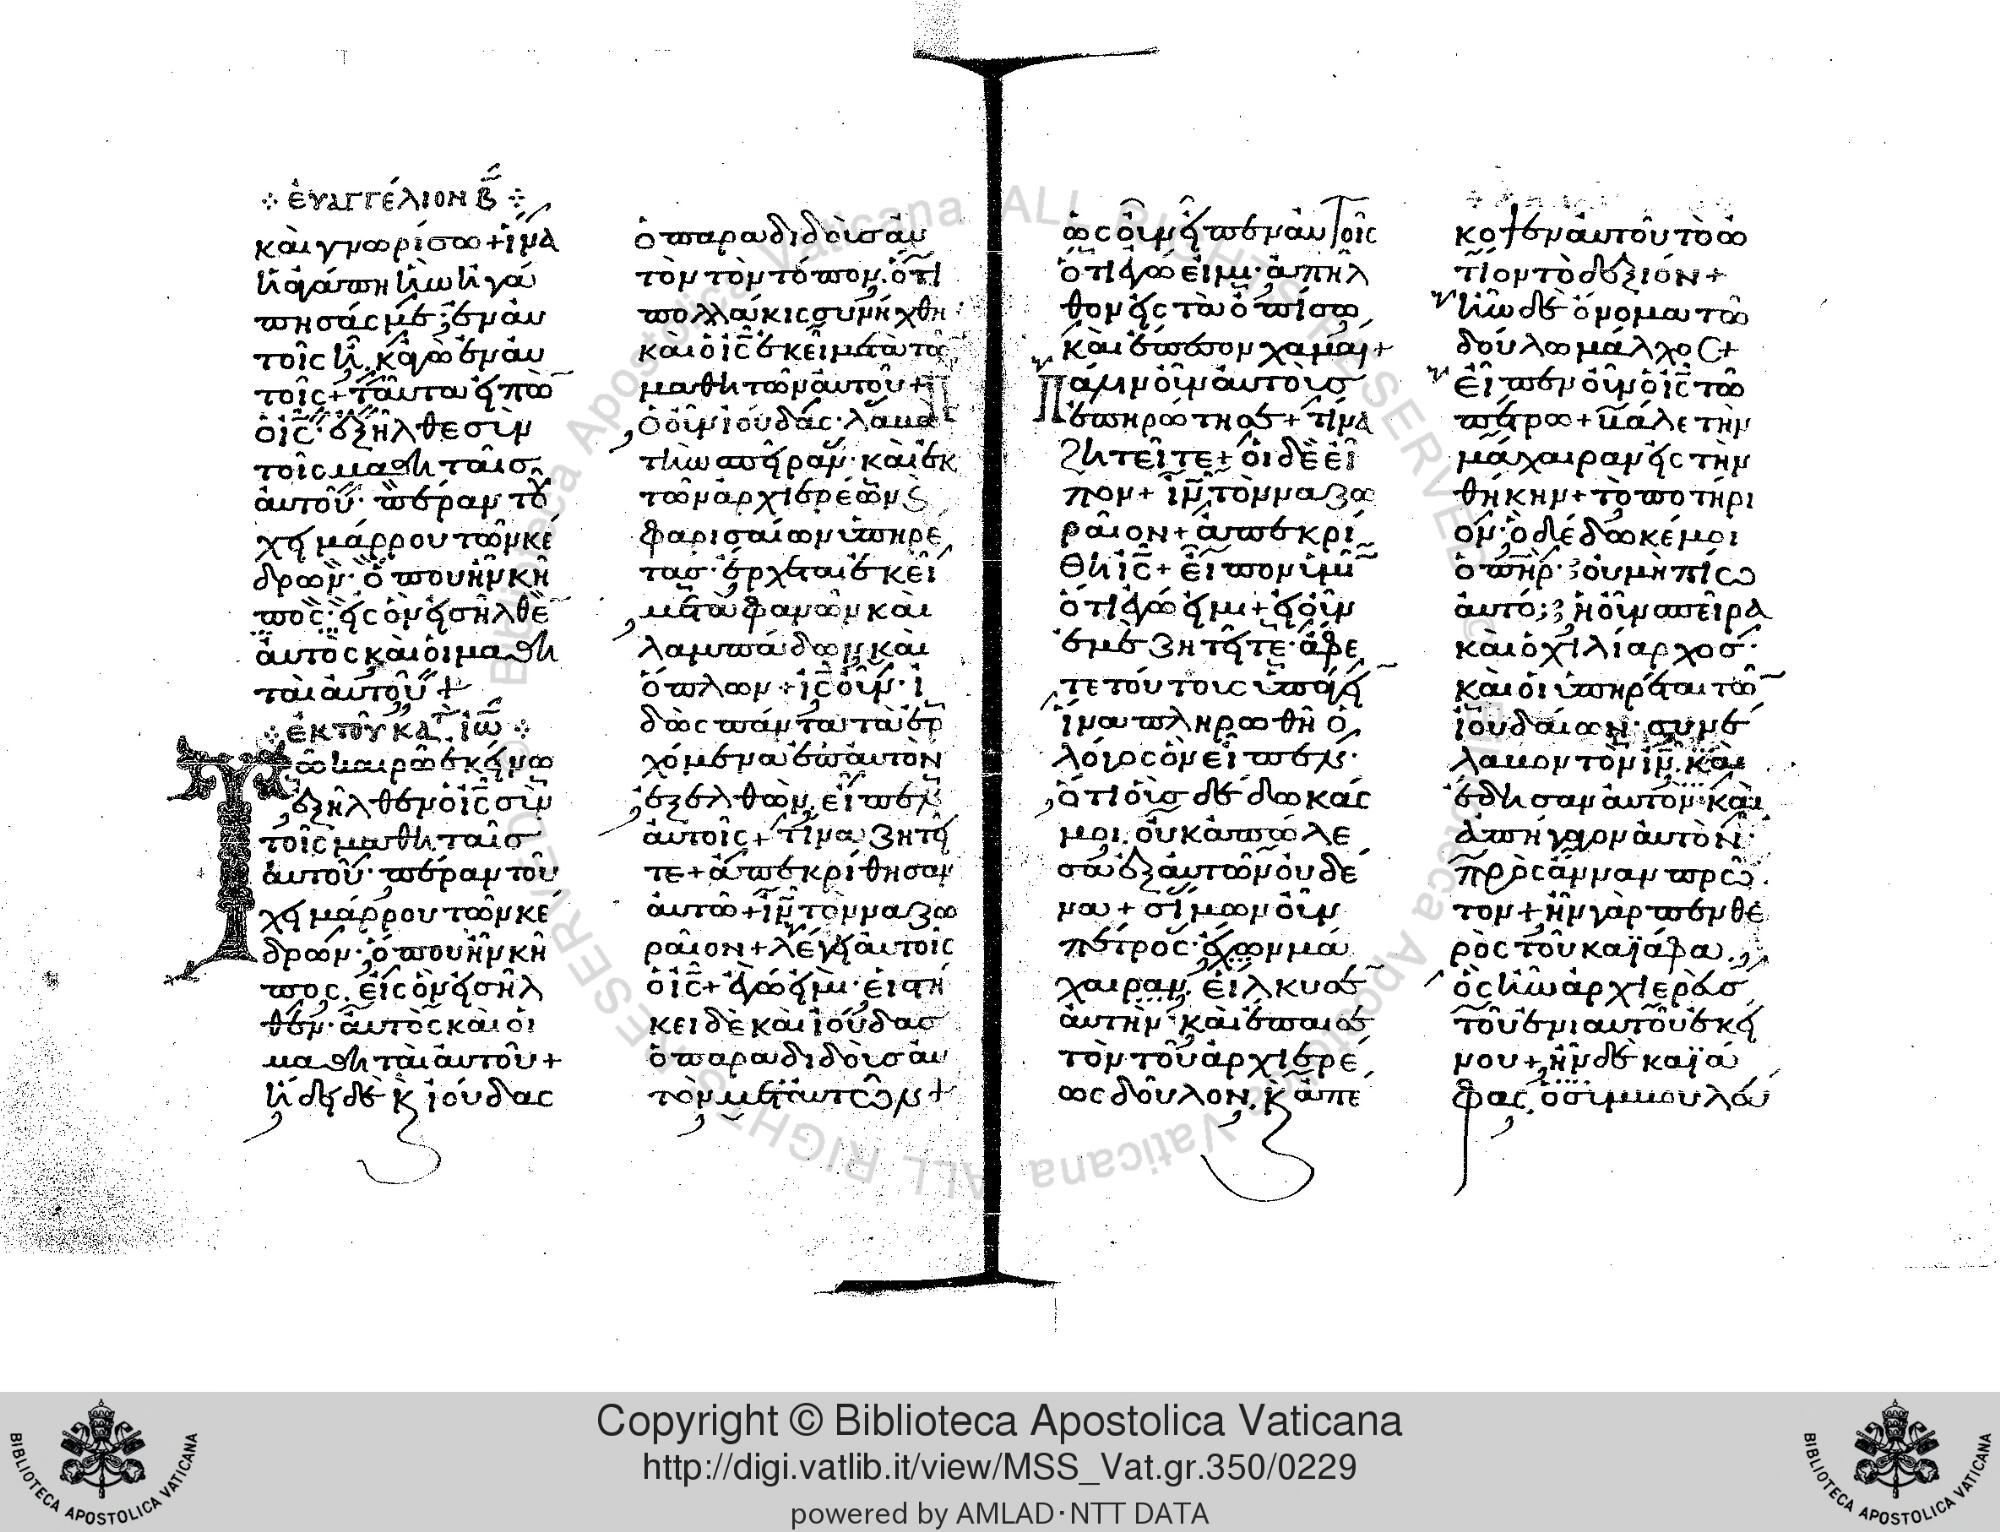 ⁘ ἐυαγγέλιον β ⁘
καὶ γνωρίσω + ἵνα
ἡ ἀγάπη ἣν ἠγά
πησάς με, ἐν ἀυ
τοῖς ἦ, κἀγὼ ἐν ἀυ
τοῖς + ταῦτα ἐιπὼ
ὁ ις̅· ἐξῆλθε σὺν
τοῖς μαθηταῖσ
ἀυτοῦ· πέραν τοῦ
χειμάρρου τῶν κέ
δρων· ὅπου ἦν κῆ
πος· ἐις ὃν ἐισῆλθε
ἀυτὸς καὶ ὁι μαθη
ταὶ ἀυτοῦ +
⁘ ἐκ τοῦ κατ ιω ⁘
Τῶ καιρῶ ἐκείνω
ἐξῆλθεν ὁ ις̅ σὺν
τοῖς μαθηταῖσ
ἀυτοῦ· πέραν τοῦ
χειμάρρου τῶν κέ
δρων· ὅπου ἦν κῆ
πος, εἰς ὃν ἐισῆλ
θεν· ἀυτὸς καὶ ὁι
μαθηταὶ ἀυτοῦ +
ἤδει δὲ κ̀ ἰούδας
ὁ παραδιδοὺσ ἀυ
τὸν τὸν τόπον, ὅτι
πολλάκις συνήχθη
καὶ ὁ ις̅ ἐκεῖ μετὰ τῶ
μαθητῶν ἀυτοῦ +
ὁ οὖν ἰούδας· λαβὼ
τὴν σπεῖραν· καὶ ἐκ
τῶν ἀρχιερέων κ̀
φαρισαίων ὑπηρέ
τασ· ἔρχεται ἐκεῖ
μετὰ φανῶν καὶ
λαμπάδων καὶ
ὅπλων + ις̅ οὖν· ἰ
δὼς πάντα τὰ ἐρ
χόμενα ἐπ ἀυτὸν
ἐξελθὼν, εἶπεν
ἀυτοῖς + τίνα ζητεῖ
τε + ἀπεκρίθησαν
ἀυτῶ + ιν̅ τὸν ναζω
ραῖον + λέγει ἀυτοῖς
ὁ ις̅ + ἐγώ ἐιμι· εἱστή
κει δὲ καὶ ἰούδασ
ὁ παραδιδοὺσ ἀυ
τὸν μετ ἀυτῶν +
ὡς οὖν εἶπεν ἀυτοῖς
ὅτι ἐγώ εἰμι· ἀπῆλ
θον ἐις τὰ ὀπίσω
καὶ ἔπεσον χαμαί +
Πάλιν οὖν ἀυτοὺσ
ἐπηρώτησε + τίνα
ζητεῖτε + ὁι δὲ εἶ
πον + ιν̅ τὸν ναζω
ραῖον + ἀπεκρί
θη ις̅ + εἶπον ὑμῖ
ὅτι ἐγώ ἐιμι + ἐι οὖν
ἐμὲ ζητεῖτε· ἄφε
τε τούτους ὑπάγει
ἵνα πληρωθῆ ὁ
λόγος ὃν εἶπεν·
ὅτι οὓσ δέδωκάς
μοι, οὐκ ἀπώλε
σα ἐξ ἀυτῶν οὐδέ
να + σίμων οὖν
πέτρος· ἔχων μά
χαιραν, εἵλκυσε
ἀυτὴν· καὶ ἔπαισε
τὸν τοῦ ἀρχιερέ
ως δοῦλον, κ̀ ἀπέ
κοψεν ἀυτοῦ τὸ ὠ
τίον τὸ δεξιόν +
ἦν δὲ ὄνομα τῶ
δούλω μάλχος +
εἶπεν οὖν ὁ ις̅ τῶ
πέτρω + βάλε τὴν
μάχαιραν ἐις τὴν
θήκην + τὸ ποτήρι
ον· ὃ δέδωκέ μοι
ὁ πηρ· οὐ μὴ πίω
αὐτό; ἡ οὖν σπεῖρα
καὶ ὁ χιλίαρχοσ·
καὶ ὁι ὑπηρέται τῶ
ἰουδαίων· συνέ
λαβον τὸν ιν̅, καὶ
ἔδησαν ἀυτὸν· καὶ
ἀπήγαγον ἀυτὸν·
πρὸς ἄνναν πρῶ
τον + ἦν γὰρ πενθε
ρὸς τοῦ καϊάφα,
ὃς ἦν ἀρχιερεὺσ
τοῦ ἐνιαυτοῦ ἐκεί
νου + ἦν δὲ καϊά
φας, ὁ συμβουλεύ
Copyright © Biblioteca Apostolica Vaticana
http://digi.vatlib.it/view/MSS_Vat.gr.350/0229
powered by AMLAD·NTT DATA
BIBLIOTECA APOSTOLICA VATICANA
BIBLIOTECA APOSTOLICA VATICANA